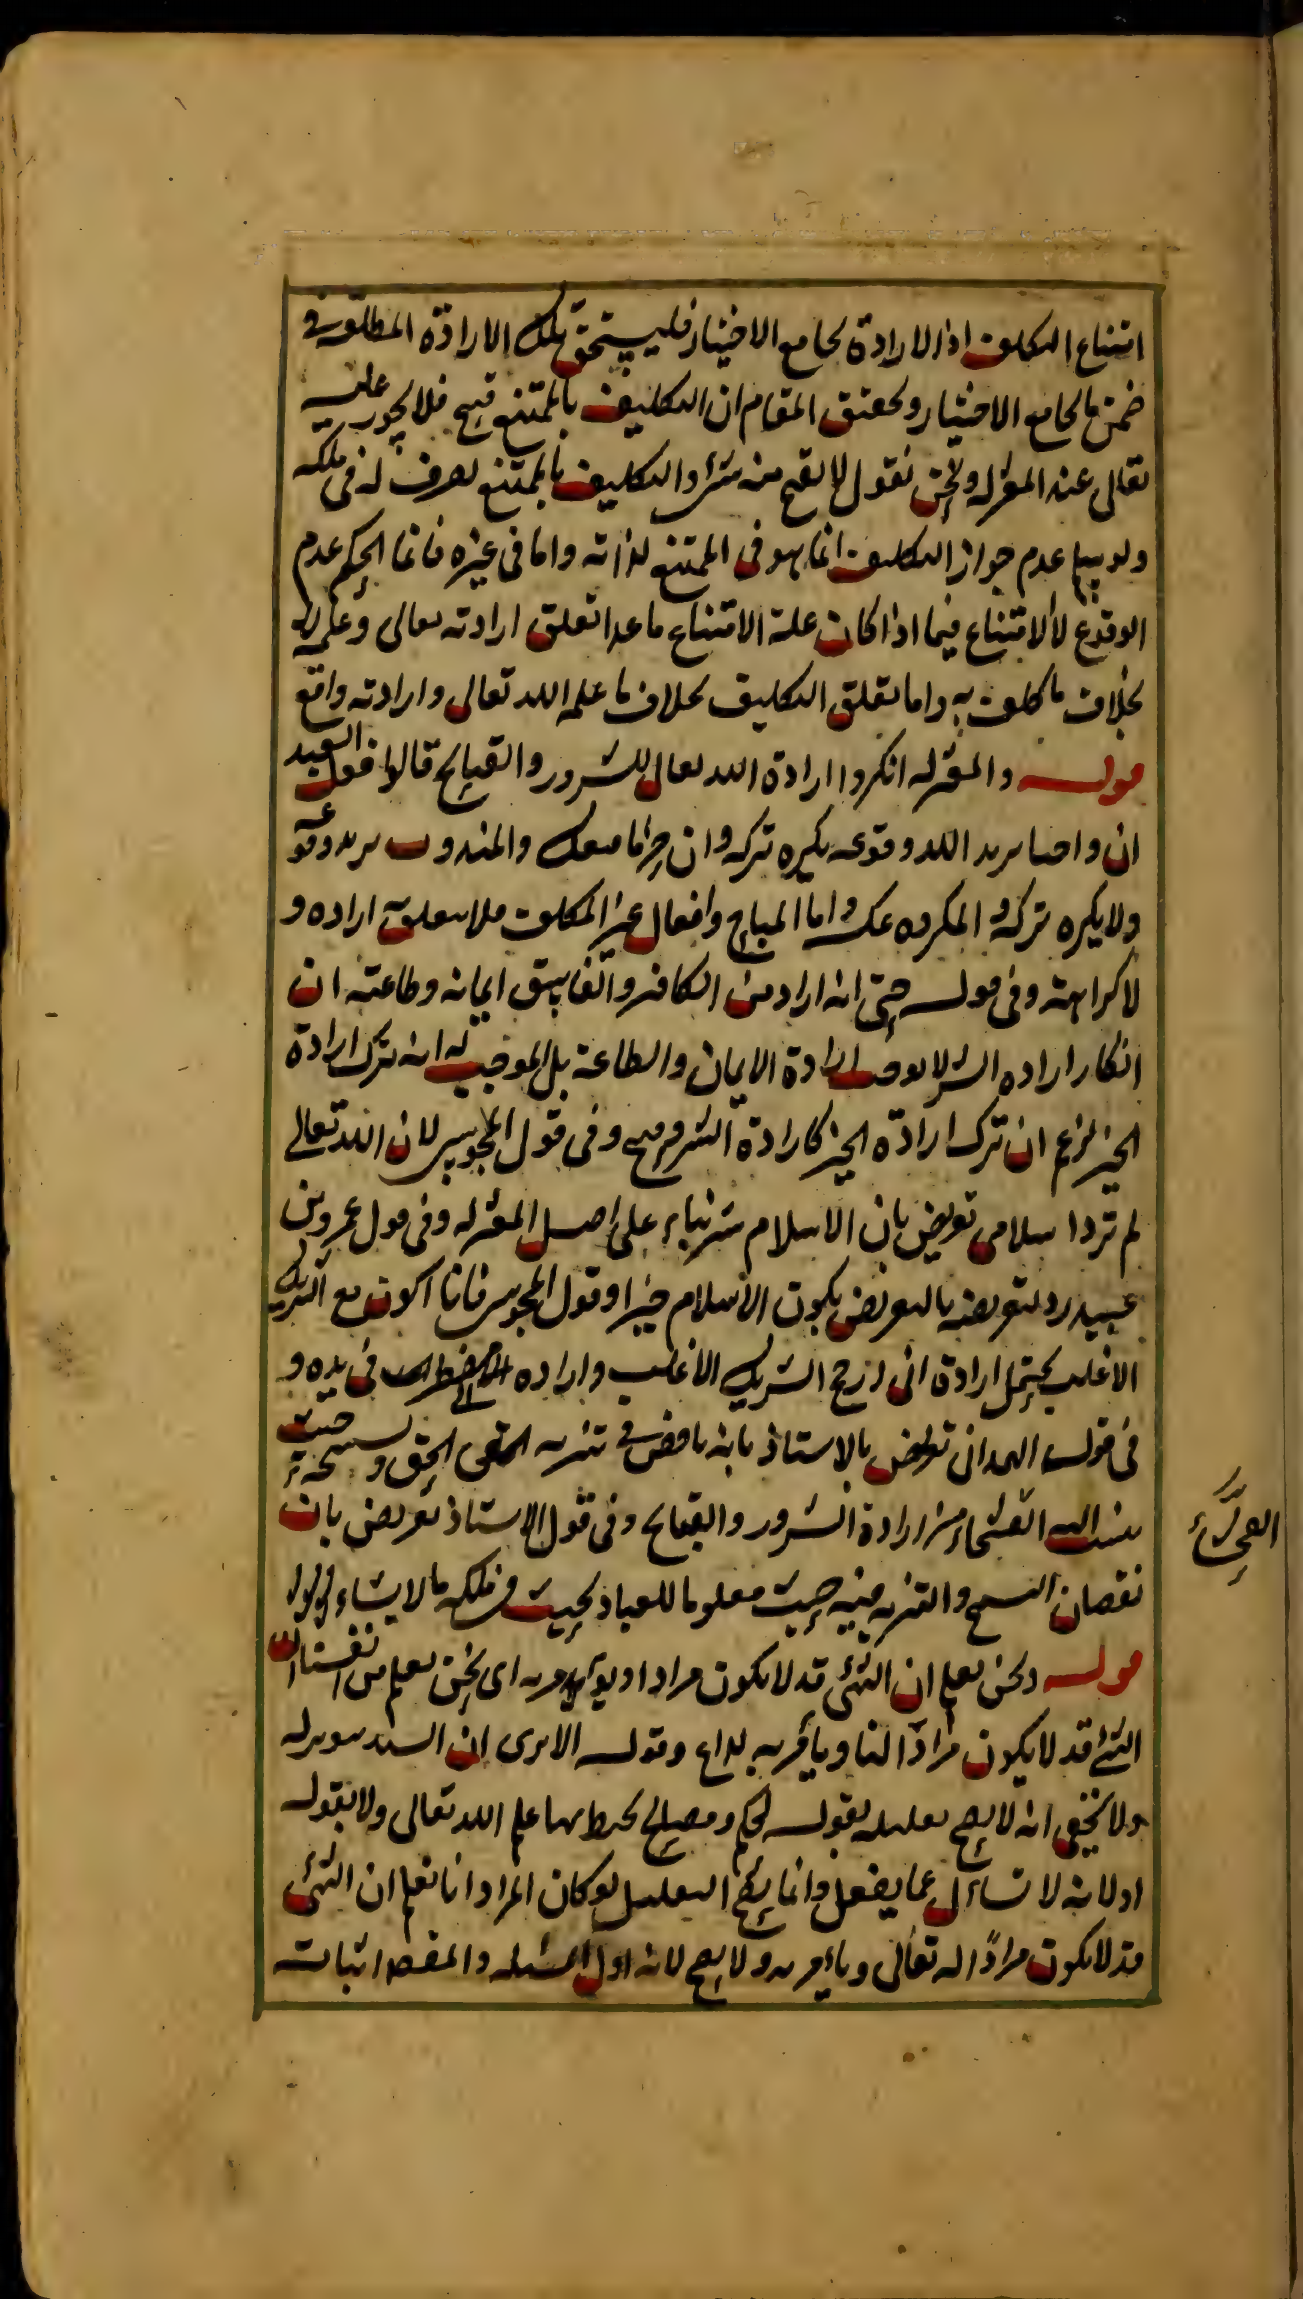 امتناع التكليف اذ الارادة تجامع الاختيار فليستحق تلك الارادة المطلقة في
ضمن ما تجامع الاختيار وتحقيق المقام ان التكليف بالممتنع قبيح فلا يجوز عليه
تعالى عند المعتزلة ونحن نقول لا يقبح منه شئ والتكليف بالممتنع تصرف له في ملكه
ولو سلم عدم جواز التكليف انما هو في الممتنع لذاته واما في غيره فانما الحكم عدم
الوقوع لا الامتناع فيما اذا كان علة الامتناع ما عدا تعلق ارادته تعالى وعلمه
بخلاف ما كلف به واما تعلق التكليف بخلاف ما علمه الله تعالى وارادته واقع
قوله والمعتزلة انكروا ارادة الله تعالى للشرور والقبايح قالوا فعل العبد
ان واجبا يريد الله وقوعه يكره تركه وان حراما فعكسه والمندوب يريد وقوعه
ولا يكره تركه والمكروه عكسه واما المباح وافعال غير المكلف فلا يتعلق ارادة و
لا كراهة وفي قوله حتى انه اراد من الكافر والفاسق ايمانه وطاعته ان
انكار ارادة الشر لا يوجب ارادة الايمان والطاعة بل الموجب له انه ترك ارادة
الخير لزعم ان ترك ارادة الخير كارادة الشر قبيح وفي قول المجوسي لان الله تعالى
لم يرد اسلامي تعريض بان الاسلام شر بناء على اصل المعتزلة وفي قول عمرو بن
عبيد رد لتعريضه بالتعريض بكون الاسلام خيرا وقول المجوسي فانا اكون مع الشريك
الاغلب يحتمل ارادة اني ارجح الشريك الاغلب وارادة في يده و
في قول الهمداني تعريض بالاستاذ بانه ناقض في تنزيه الحق وتسبيحه حيث
ينسب اليه الفحشاء من ارادة الشرور والقبايح وفي قول الاستاذ تعريض بان
نقصان التسبيح والتنزيه فيه حيث مغلوبا للعباد بحيث في ملكه ما لا يشاء
قوله ونحن نعلم ان الشئ قد لا يكون مرادا ويؤمر به اى نحن نعلم من انفسنا ان
الشئ قد لا يكون مرادا لنا ونأمر به لداع وقوله الا يرى ان السيد
ولا يخفى انه لا يصح تعليله بقوله لحكم ومصالح يحيط بها علم الله تعالى ولا بقوله
او لانه لا تسأل عما يفعل وانما يصح التعليل لو كان المراد انا نعلم ان الشئ
قد لا يكون مرادا له تعالى ويأمر به ولا يصح لانه اول المسئلة والمقصد اثباته
الفحشاء